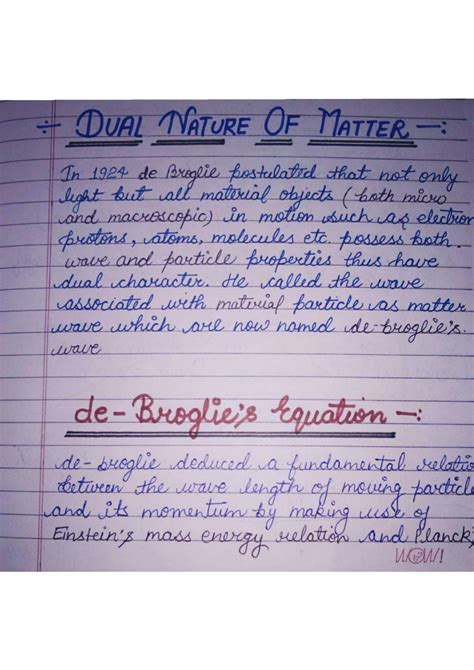 ÷ DUAL NATURE OF MATTER -:
In 1924 de Broglie postulated that not only
light but all material objects ( both micro
and macroscopic) in motion such as electron
protons, atoms, molecules etc. possess both
wave and particle properties thus have
dual character. He called the wave
associated with material particle as matter
wave which are now named de-broglie's.
wave
de-Broglie's Equation -:
de-broglie deduced a fundamental relatio
between the wave length of moving particle
and its momentum by making use of
Einstein's mass energy relation and Planck's
WOW!